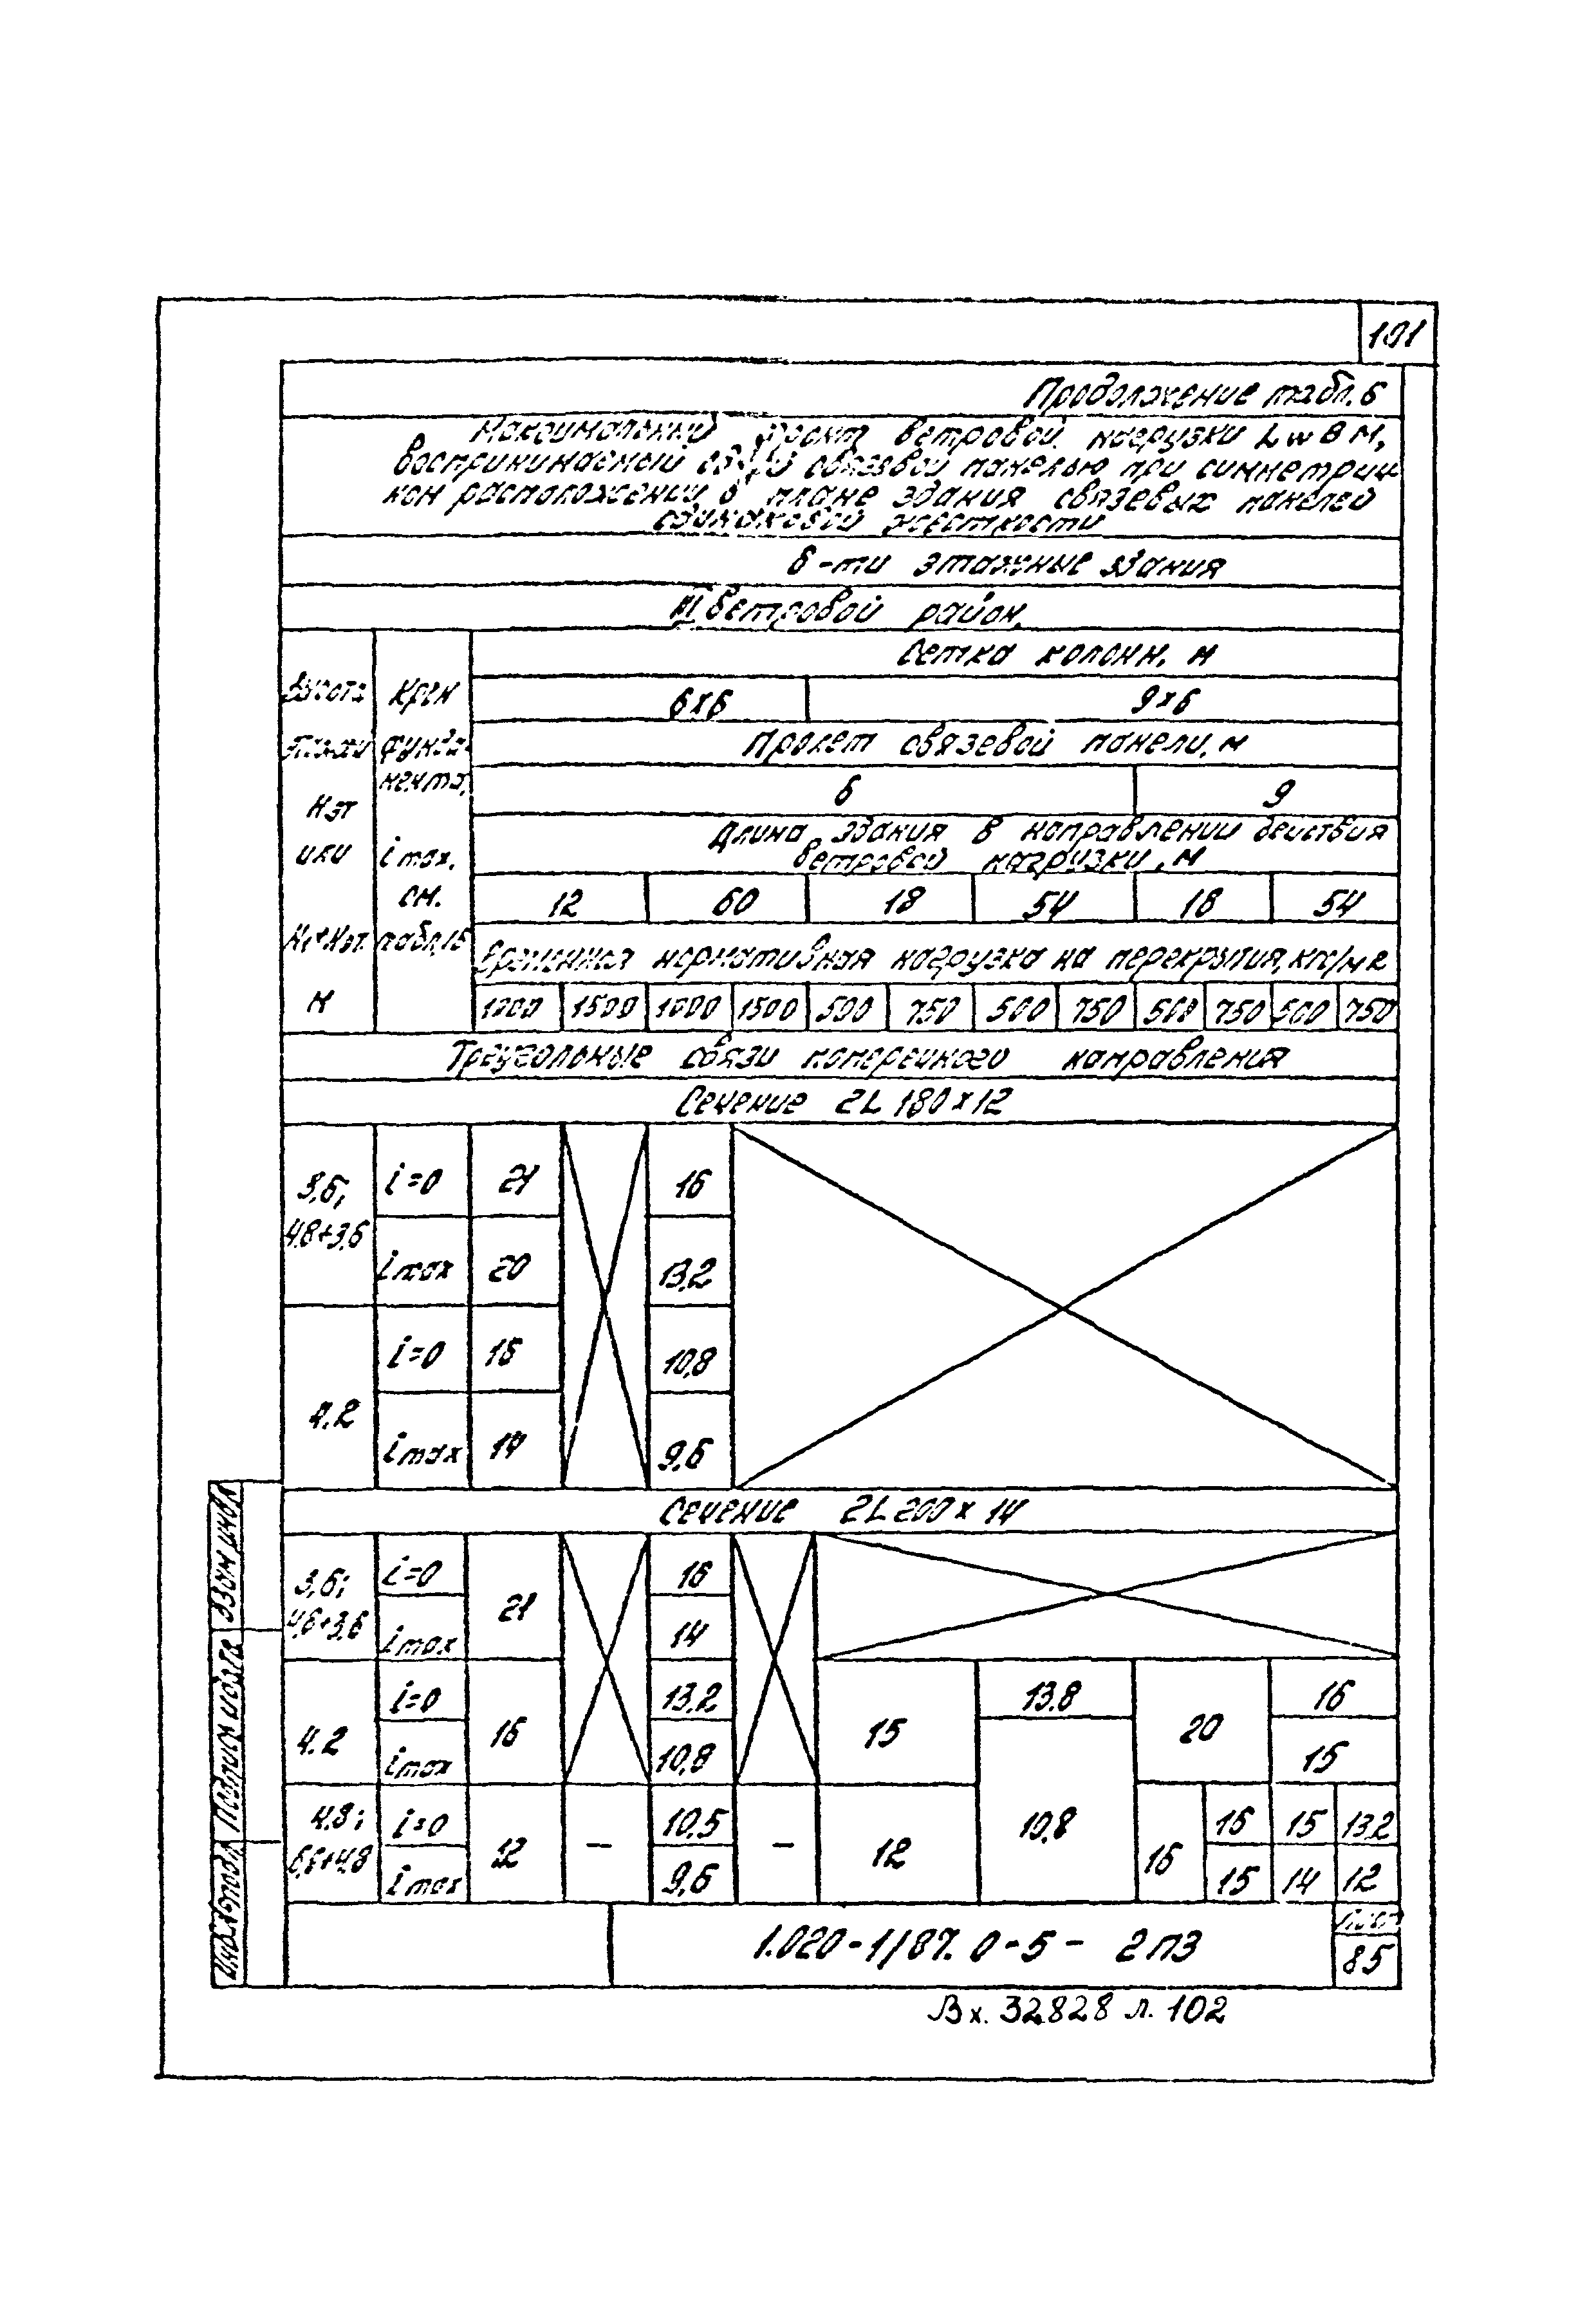 101
Продолжение табл. 6
Максимальный фронт ветровой нагрузки Lw В М,
воспринимаемый одной связевой панелью при симметрич-
ном расположении в плане здания связевых панелей
одинаковой жесткости
6-ти этажные здания
III ветровой район.
Высота этажа Нэт или Н1+Нэт М
Крен фунда- мента, i max. см. табл. 15
Сетка колонн, м
6х6 9х6
Пролет связевой панели, м
6 9
Длина здания в направлении действия
ветровой нагрузки, м
12 60 18 54 18 54
Временная нормативная нагрузка на перекрытия, кгс/м2
1000 1500 1000 1500 500 750 500 750 500 750 500 750
Треугольные связи поперечного направления
Сечение 2L 180х12
3,6; 4,8+3,6 i=0 21 16
i max 20 13,2
4.2 i=0 15 10,8
i max 14 9,6
Сечение 2L 200х14
3,6; 4,8+3,6 i=0 21 16
i max 14
4.2 i=0 16 13,2 15 13.8 20 16
i max 10,8 15
4.8; i=0 12 – 10,5 – 12 10,8 16 16 15 13,2
i max 9,6 15 14 12
1.020-1/87. 0-5- 2ПЗ
Лист
85
Вх. 32828 л. 102
Взам инв
Подпись и дата